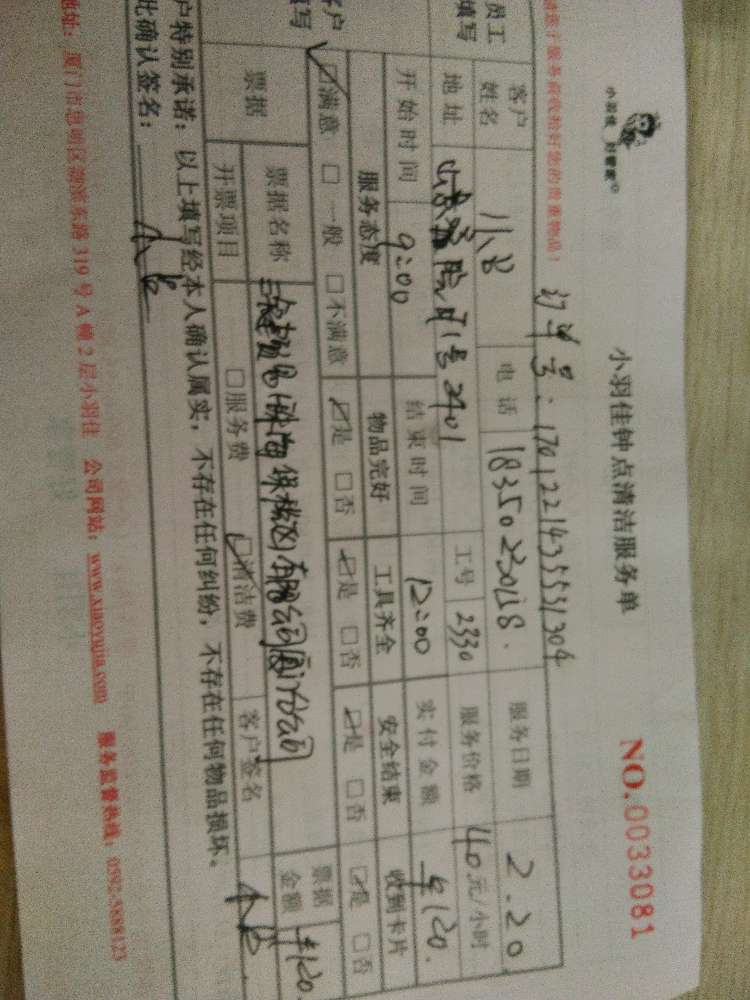 小羽佳 好管家
小羽佳钟点清洁服务单
NO.0033081
订单号:17012214355531304
服务前收拾好您的贵重物品!
员工填写
客户姓名 电话 18350230128. 服务日期 2.20
地址 1号2401 工号 2330 服务价格 40元/小时
开始时间 9:00 结束时间 12:00 实付金额 ¥120.
客户填写
服务态度 物品完好 工具齐全 安全结束 收到卡片
☑满意 □一般 □不满意 ☑是 □否 ☑是 □否 ☑是 □否 ☑是 □否
票据 票据名称 票据金额 ¥120
开票项目 □服务费 ☑清洁费 客户签名
户特别承诺:以上填写经本人确认属实,不存在任何纠纷,不存在任何物品损坏。
此确认签名:
地址:厦门市思明区湖滨东路319号A幢2层小羽佳 公司网站:www.xiaoyujia.com 服务监督热线:0592-5888123